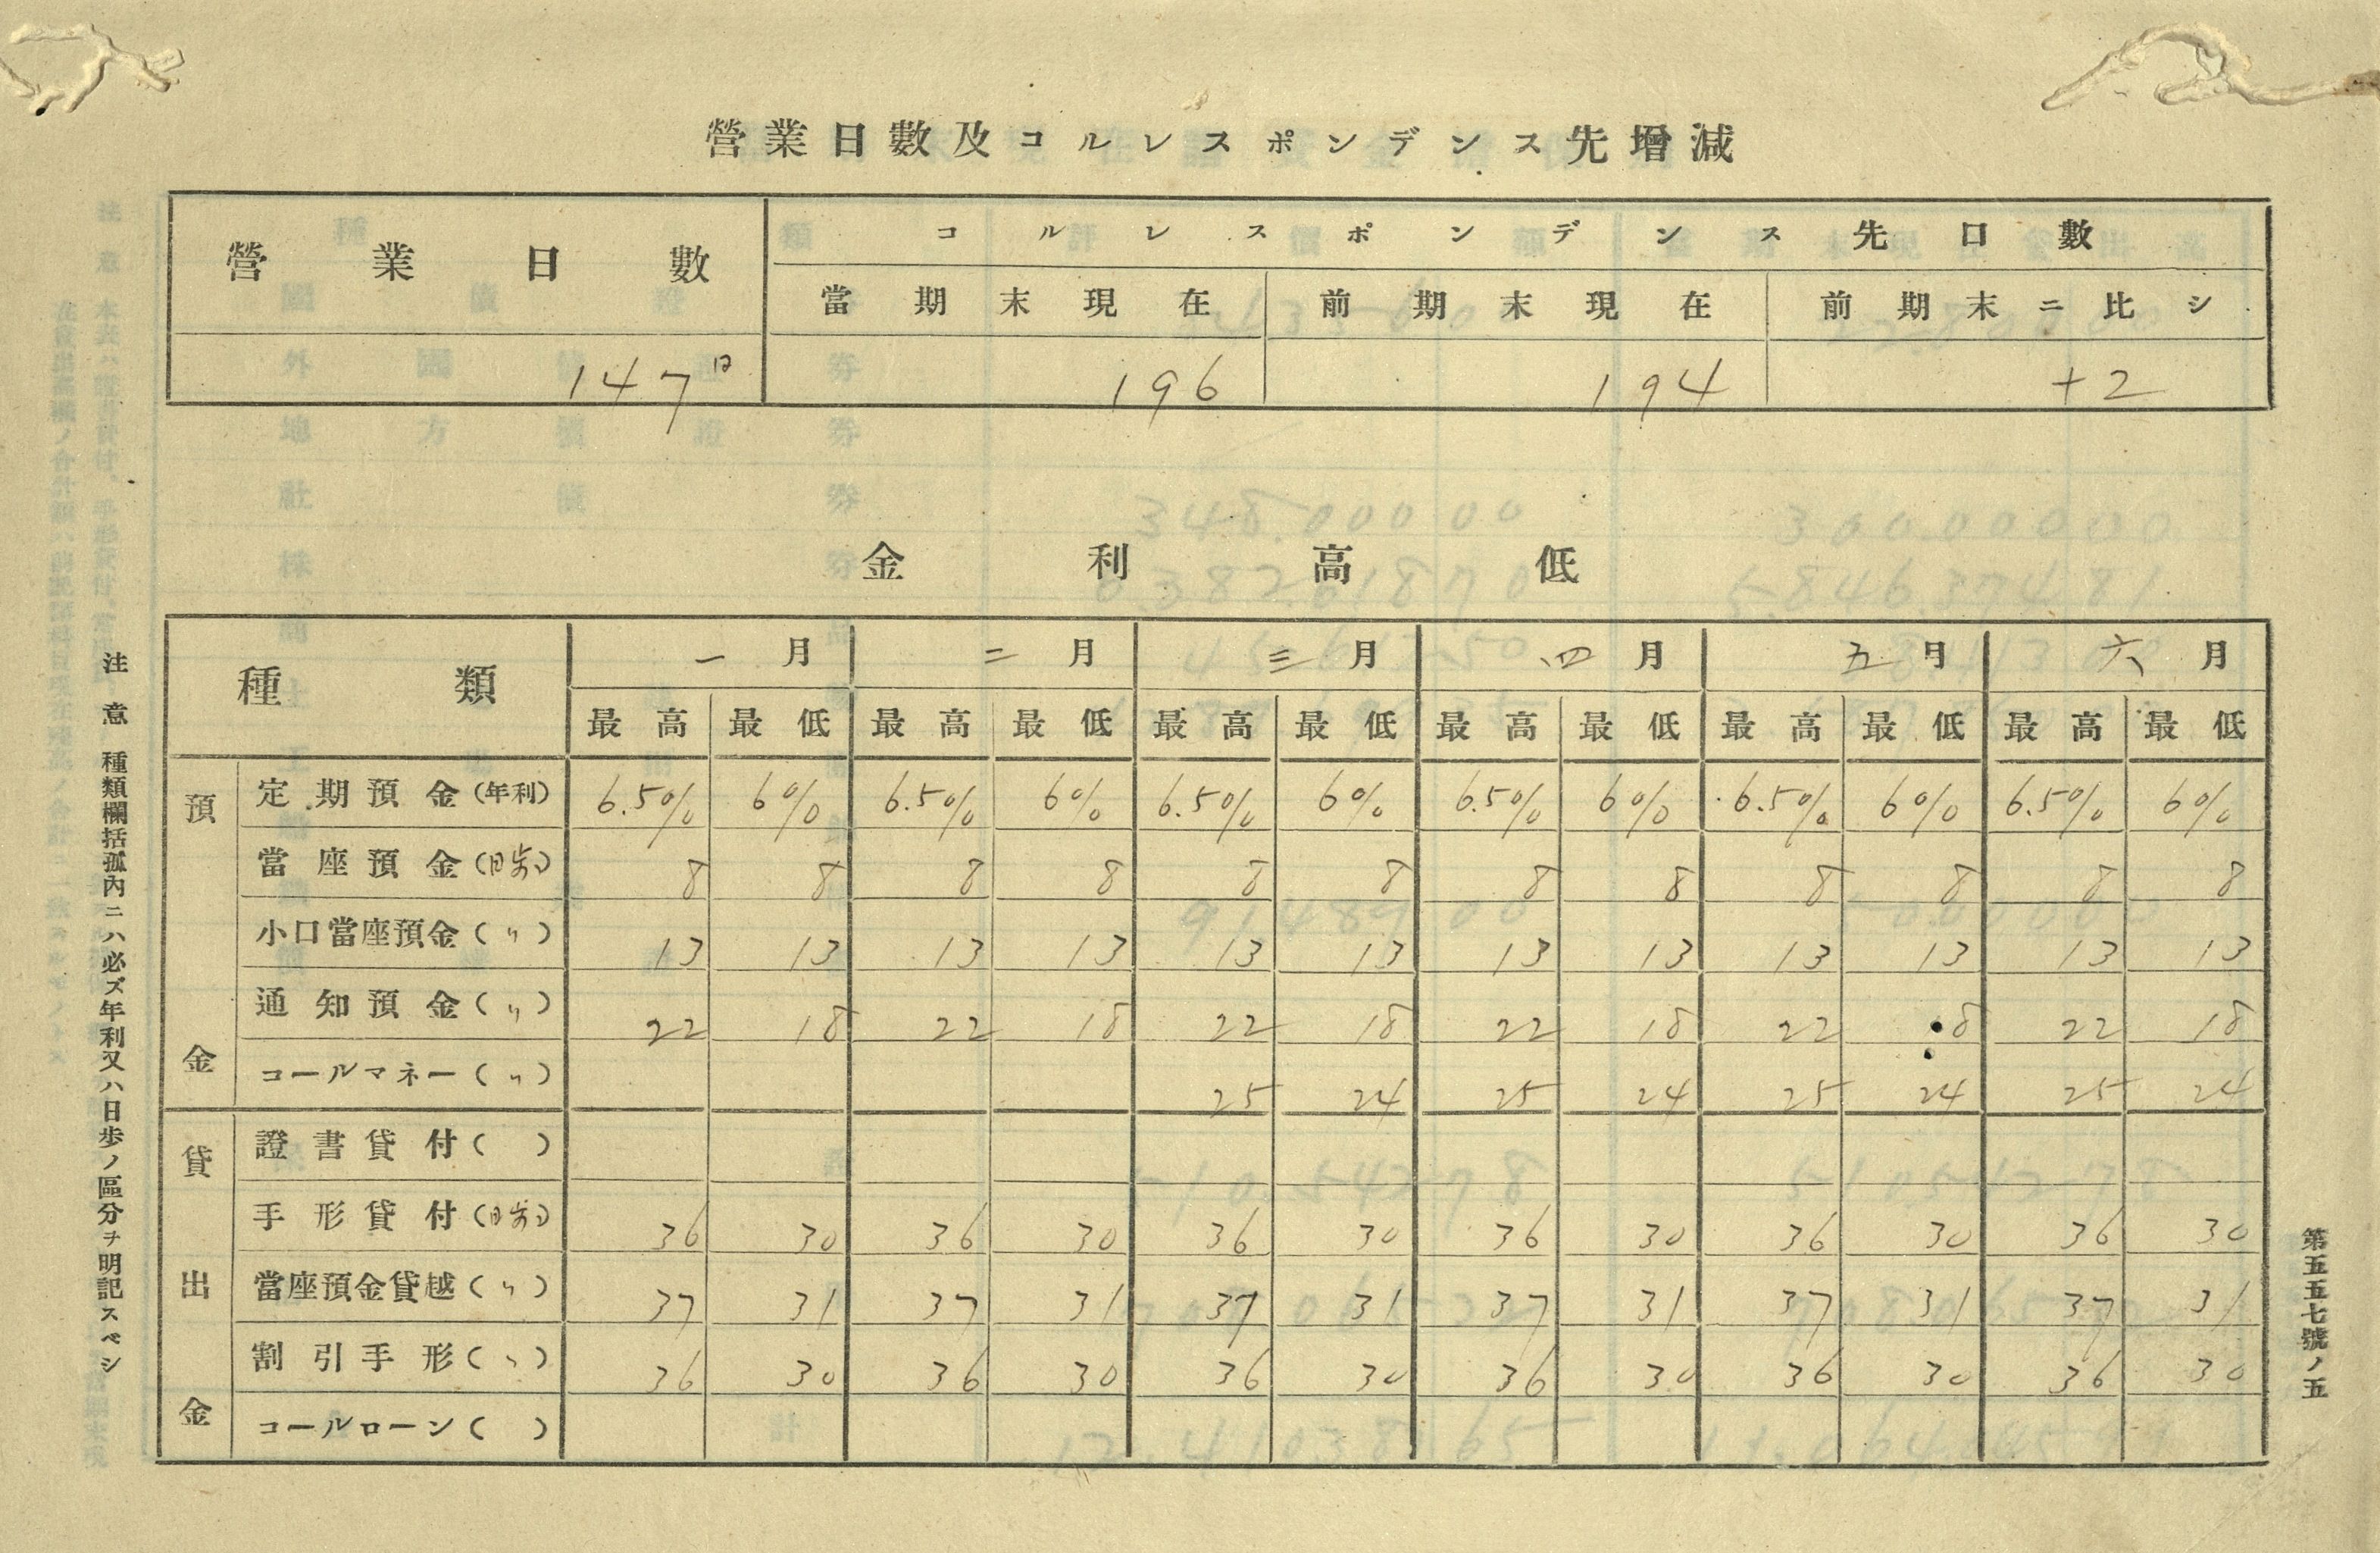 營業日數及コルレスポンデンス先增減
營業日數 コルレスポンデンス先口數
當期末現在 前期末現在 前期末ニ比シ
147日 196 194 +2
金利高低
種類 一月 二月 三月 四月 五月 六月
最高 最低 最高 最低 最高 最低 最高 最低 最高 最低 最高 最低
預金
定期預金(年利) 6.5% 6% 6.5% 6% 6.5% 6% 6.5% 6% 6.5% 6% 6.5% 6%
當座預金(日歩) 8 8 8 8 8 8 8 8 8 8 8 8
小口當座預金(〃) 13 13 13 13 13 13 13 13 13 13 13 13
通知預金(〃) 22 18 22 18 22 18 22 18 22 18 22 18
コールマネー(〃) 25 24 25 24 25 24 25 24
貸出金
證書貸付( )
手形貸付(日歩) 36 30 36 30 36 30 36 30 36 30 36 30
當座預金貸越(〃) 37 31 37 31 37 31 37 31 37 31 37 31
割引手形(〃) 36 30 36 30 36 30 36 30 36 30 36 30
コールローン( )
注意 種類欄括孤內ニハ必ズ年利又ハ日歩ノ區分ヲ明記スベシ
第五五七號ノ五